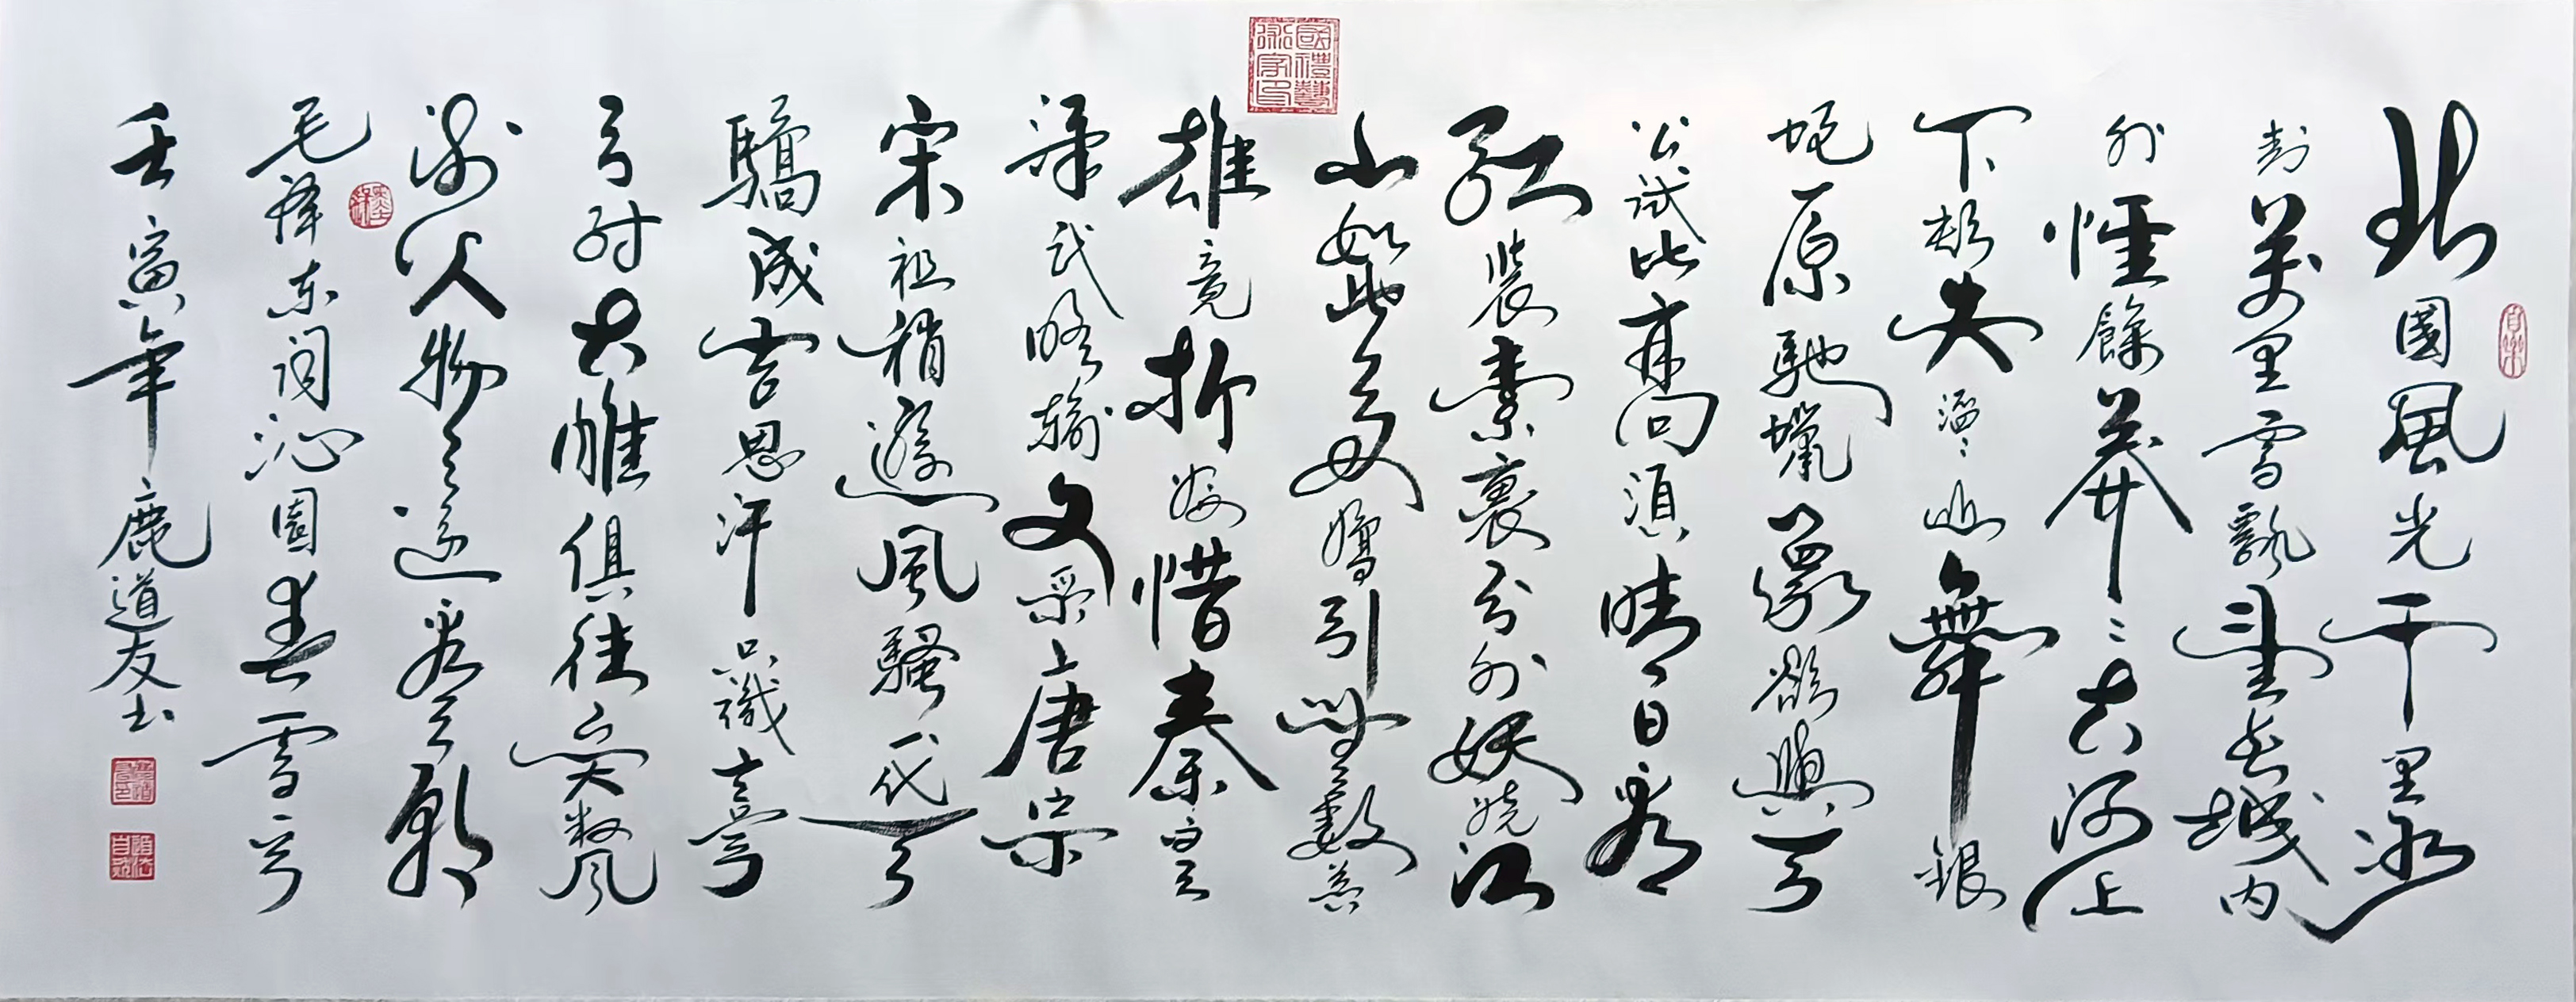 北國風光千里冰
封萬里雪飄望長城内
外惟餘莽〻大河上
下頓失滔〻山舞銀
蛇原馳蠟象欲與天
公試比高須晴日看
紅裝素裹分外妖嬈江
山如此多嬌引無數英
雄竟折腰惜秦皇
漢武略輸文采唐宗
宋祖稍遜風騷一代天
驕成吉思汗只識彎
弓射大雕俱往矣數風
流人物還看今朝
毛澤東词沁園春雪
壬寅年鹿道友书
國禮藝術家印